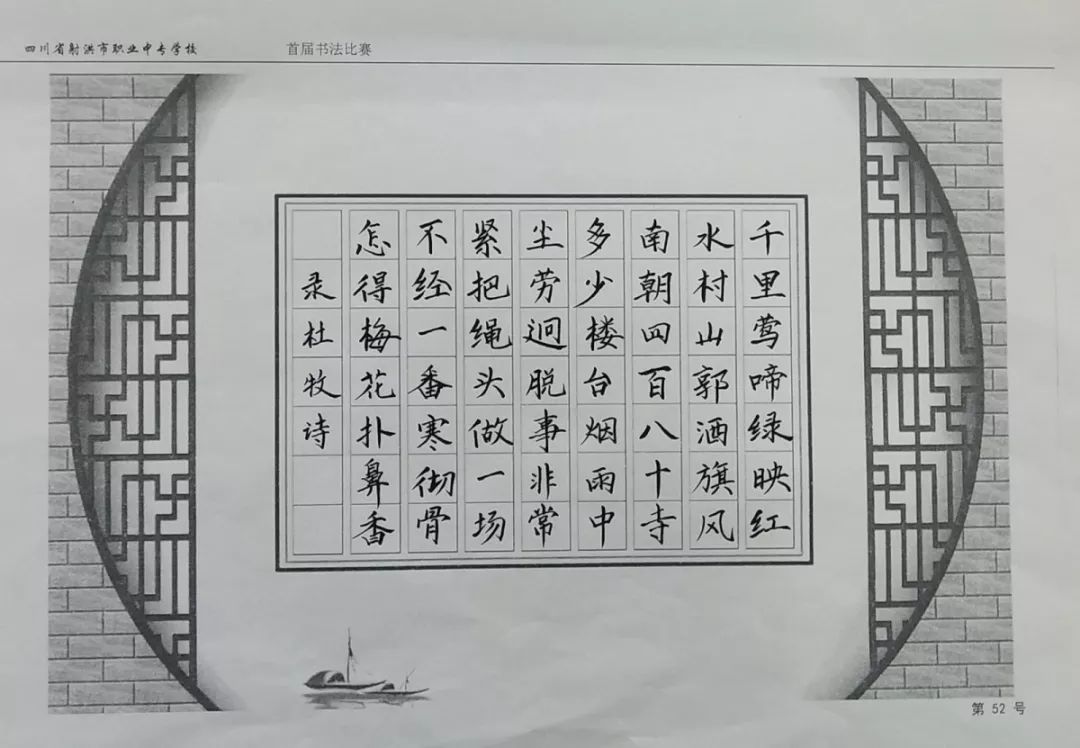 四川省射洪市职业中专学校 首届书法比赛
千里莺啼绿映红
水村山郭酒旗风
南朝四百八十寺
多少楼台烟雨中
尘劳迥脱事非常
紧把绳头做一场
不经一番寒彻骨
怎得梅花扑鼻香
录杜牧诗
第 52 号